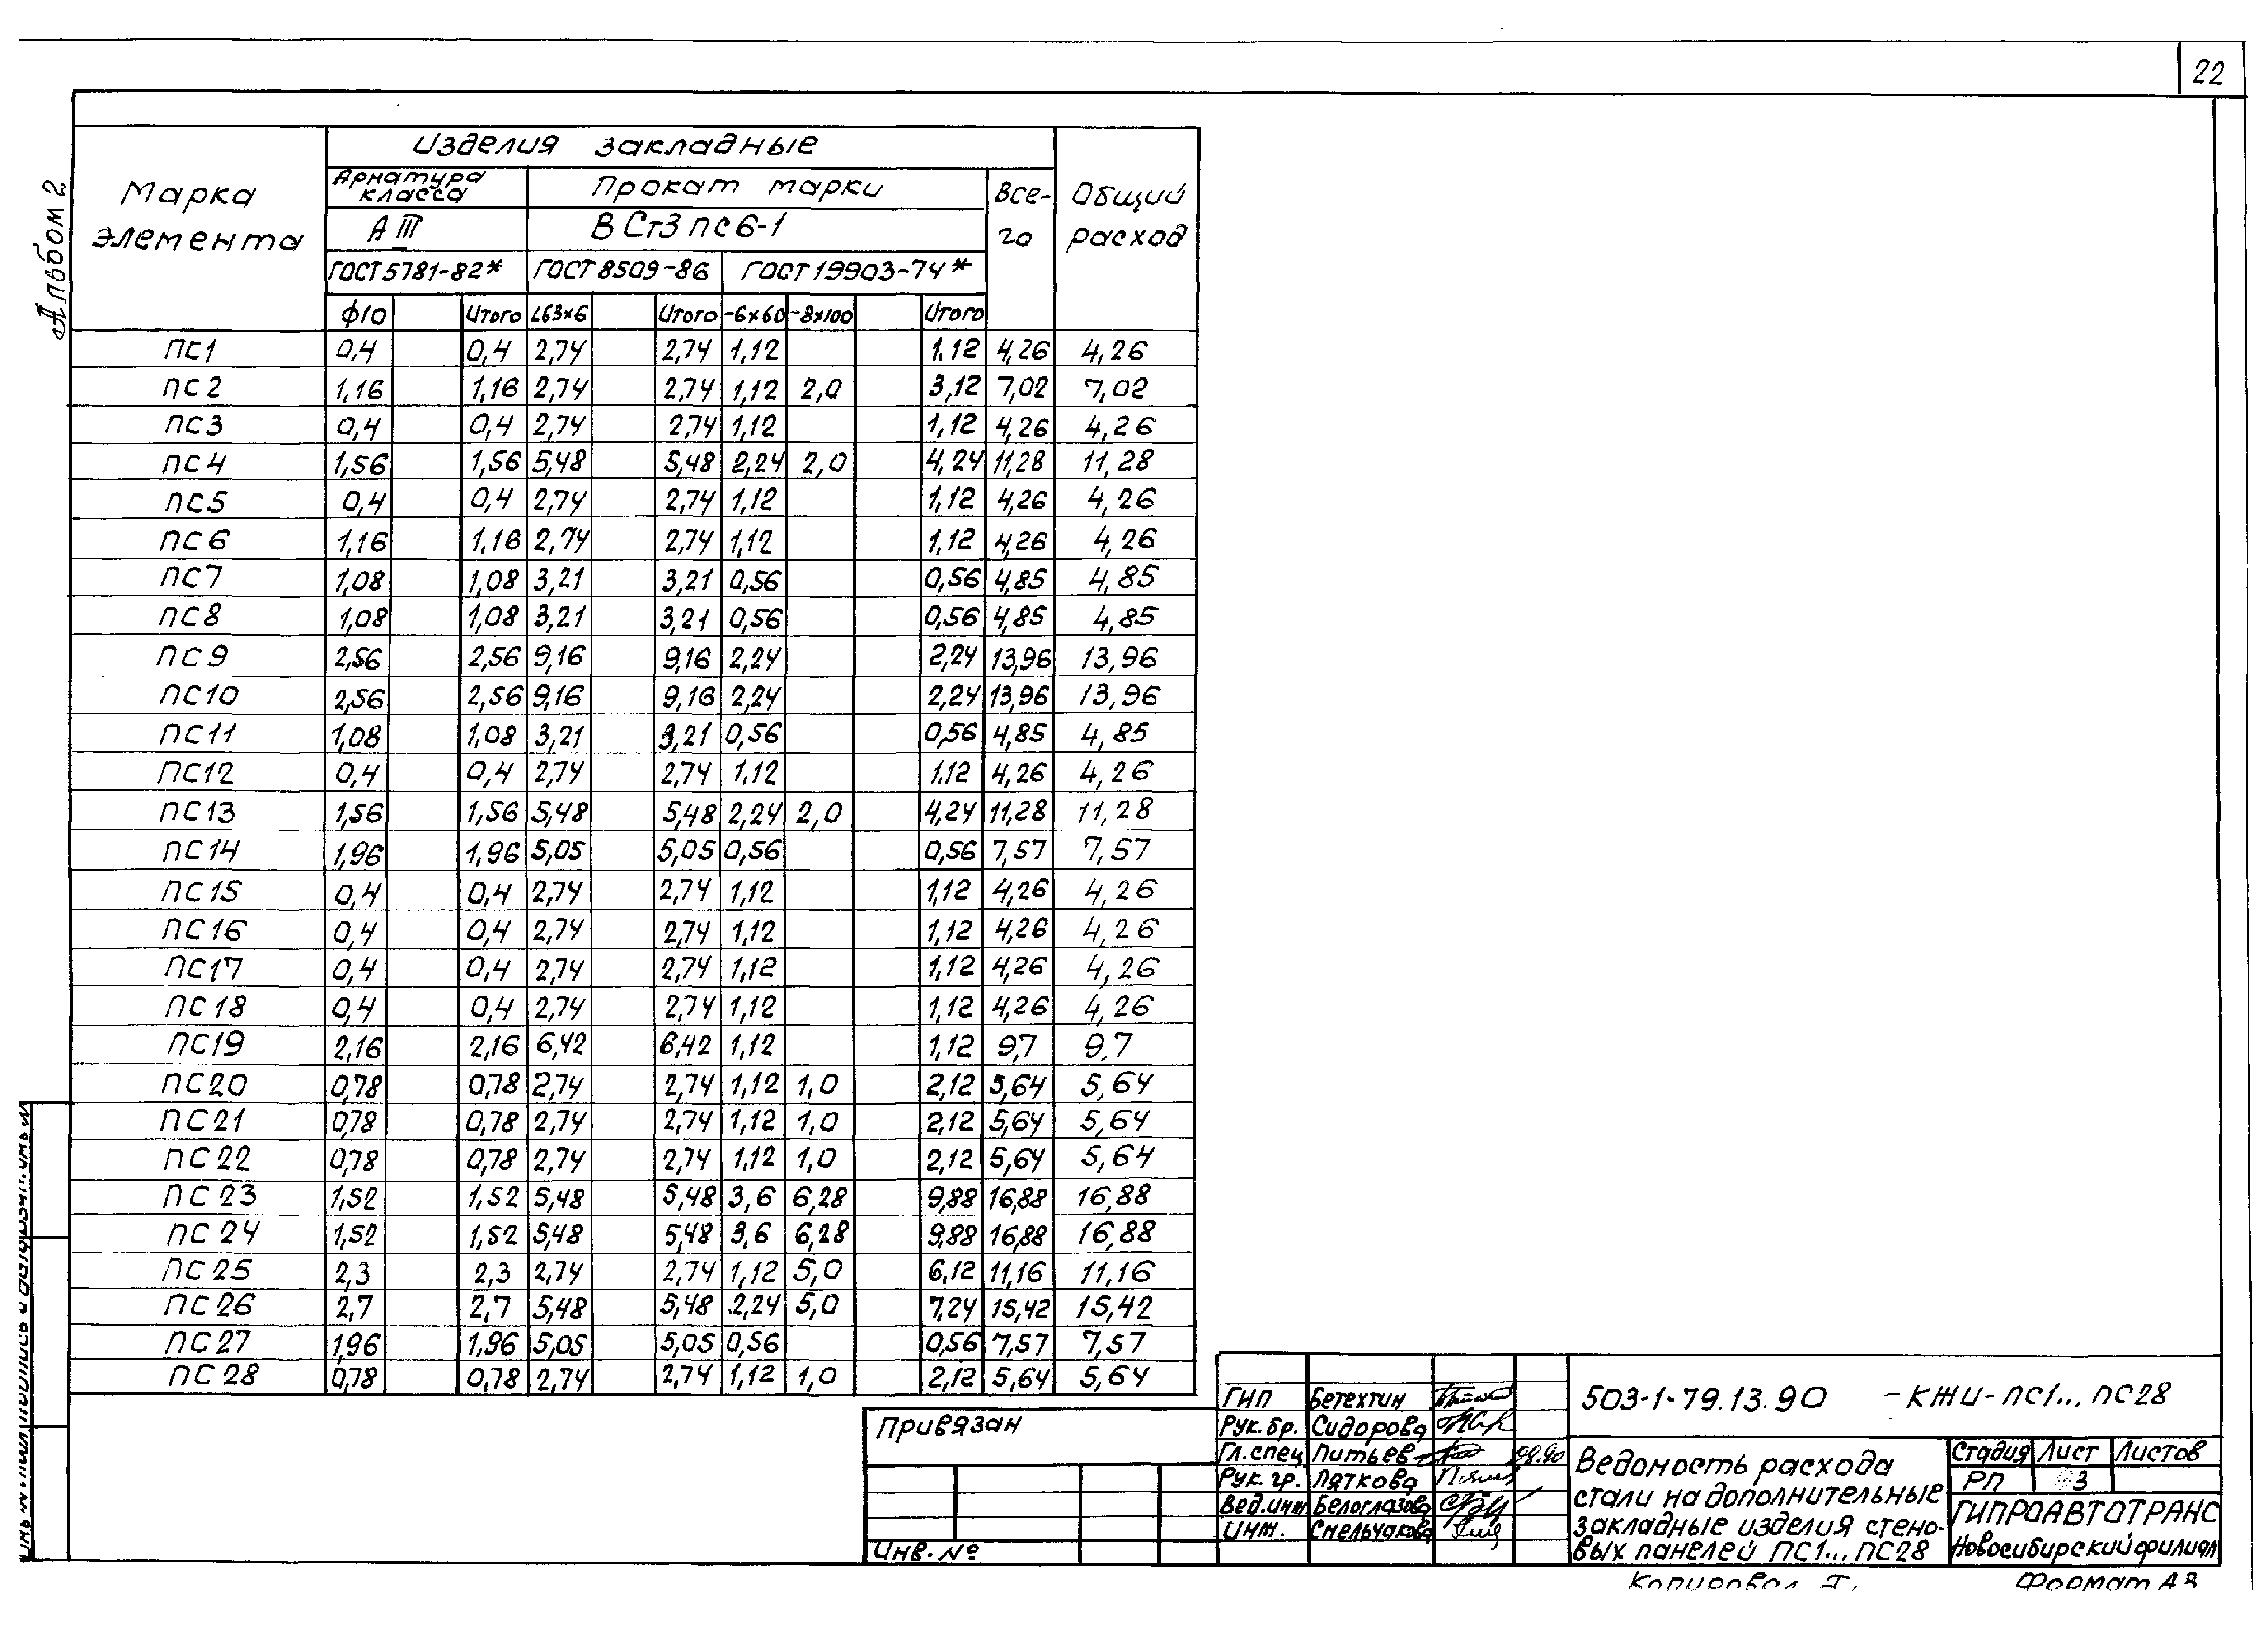 22
Альбом 2
Марка элемента
Изделия закладные
Арматура класса
Прокат марки
Все-го
Общий расход
А III
В Ст3 пс 6-1
ГОСТ 5781-82* ГОСТ 8509-86 ГОСТ 19903-74*
ф10 Итого L63×6 Итого -6×60 -8×100 Итого
ПС1 0,4 0,4 2,74 2,74 1,12 1,12 4,26 4,26
ПС2 1,16 1,16 2,74 2,74 1,12 2,0 3,12 7,02 7,02
ПС3 0,4 0,4 2,74 2,74 1,12 1,12 4,26 4,26
ПС4 1,56 1,56 5,48 5,48 2,24 2,0 4,24 11,28 11,28
ПС5 0,4 0,4 2,74 2,74 1,12 1,12 4,26 4,26
ПС6 1,16 1,16 2,74 2,74 1,12 1,12 4,26 4,26
ПС7 1,08 1,08 3,21 3,21 0,56 0,56 4,85 4,85
ПС8 1,08 1,08 3,21 3,21 0,56 0,56 4,85 4,85
ПС9 2,56 2,56 9,16 9,16 2,24 2,24 13,96 13,96
ПС10 2,56 2,56 9,16 9,16 2,24 2,24 13,96 13,96
ПС11 1,08 1,08 3,21 3,21 0,56 0,56 4,85 4,85
ПС12 0,4 0,4 2,74 2,74 1,12 1,12 4,26 4,26
ПС13 1,56 1,56 5,48 5,48 2,24 2,0 4,24 11,28 11,28
ПС14 1,96 1,96 5,05 5,05 0,56 0,56 7,57 7,57
ПС15 0,4 0,4 2,74 2,74 1,12 1,12 4,26 4,26
ПС16 0,4 0,4 2,74 2,74 1,12 1,12 4,26 4,26
ПС17 0,4 0,4 2,74 2,74 1,12 1,12 4,26 4,26
ПС18 0,4 0,4 2,74 2,74 1,12 1,12 4,26 4,26
ПС19 2,16 2,16 6,42 6,42 1,12 1,12 9,7 9,7
ПС20 0,78 0,78 2,74 2,74 1,12 1,0 2,12 5,64 5,64
ПС21 0,78 0,78 2,74 2,74 1,12 1,0 2,12 5,64 5,64
ПС22 0,78 0,78 2,74 2,74 1,12 1,0 2,12 5,64 5,64
ПС23 1,52 1,52 5,48 5,48 3,6 6,28 9,88 16,88 16,88
ПС24 1,52 1,52 5,48 5,48 3,6 6,28 9,88 16,88 16,88
ПС25 2,3 2,3 2,74 2,74 1,12 5,0 6,12 11,16 11,16
ПС26 2,7 2,7 5,48 5,48 2,24 5,0 7,24 15,42 15,42
ПС27 1,96 1,96 5,05 5,05 0,56 0,56 7,57 7,57
ПС28 0,78 0,78 2,74 2,74 1,12 1,0 2,12 5,64 5,64
Привязан
Инв. №
ГИП Бетехтин
Рук. бр. Сидорова
Гл. спец Питьев
Рук. гр. Пяткова
Вед. инж Белоглазова
Инж. Смельчакова
503-1-79.13.90 -КЖИ-ПС1..., ПС28
Ведомость расхода
стали на дополнительные
закладные изделия стено-
вых панелей ПС1... ПС28
Стадия Лист Листов
РП 3
ГИПРОАВТОТРАНС
Новосибирский филиал
Копировал
Формат А3